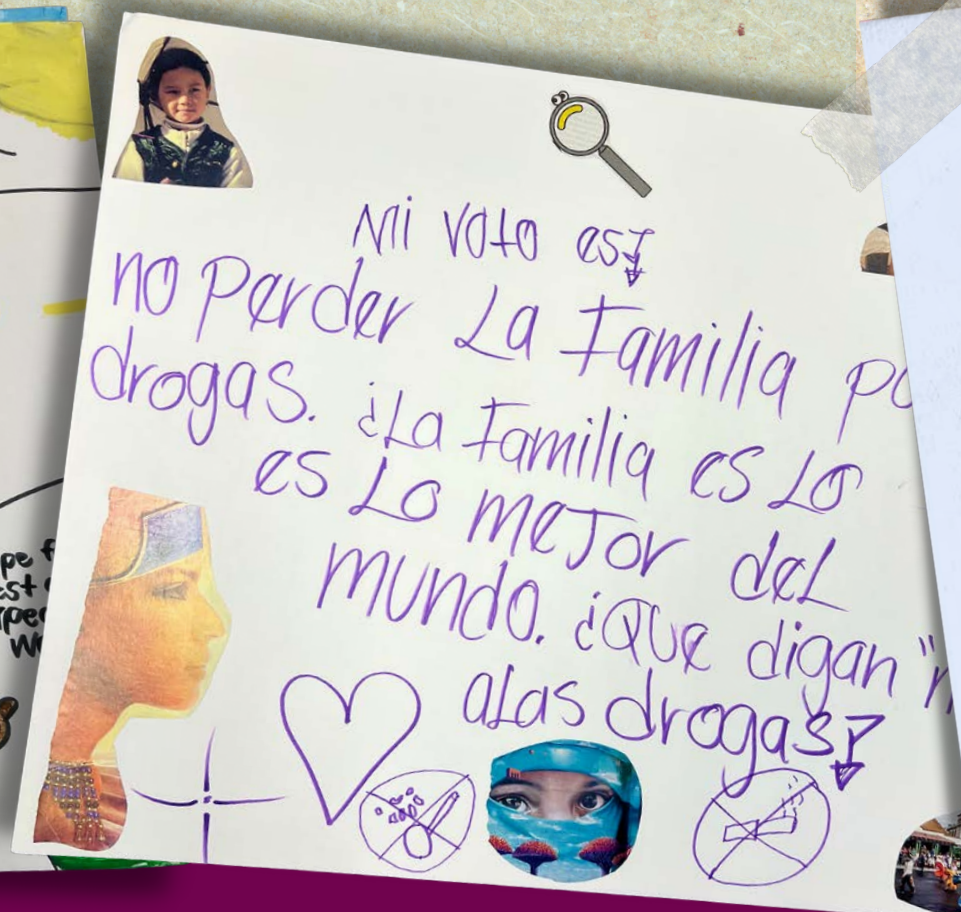 Mi voto es!
no Perder La Familia
drogas. ¡La Familia es Lo
es Lo mejor del
mundo. ¡Que digan
aLas drogas!